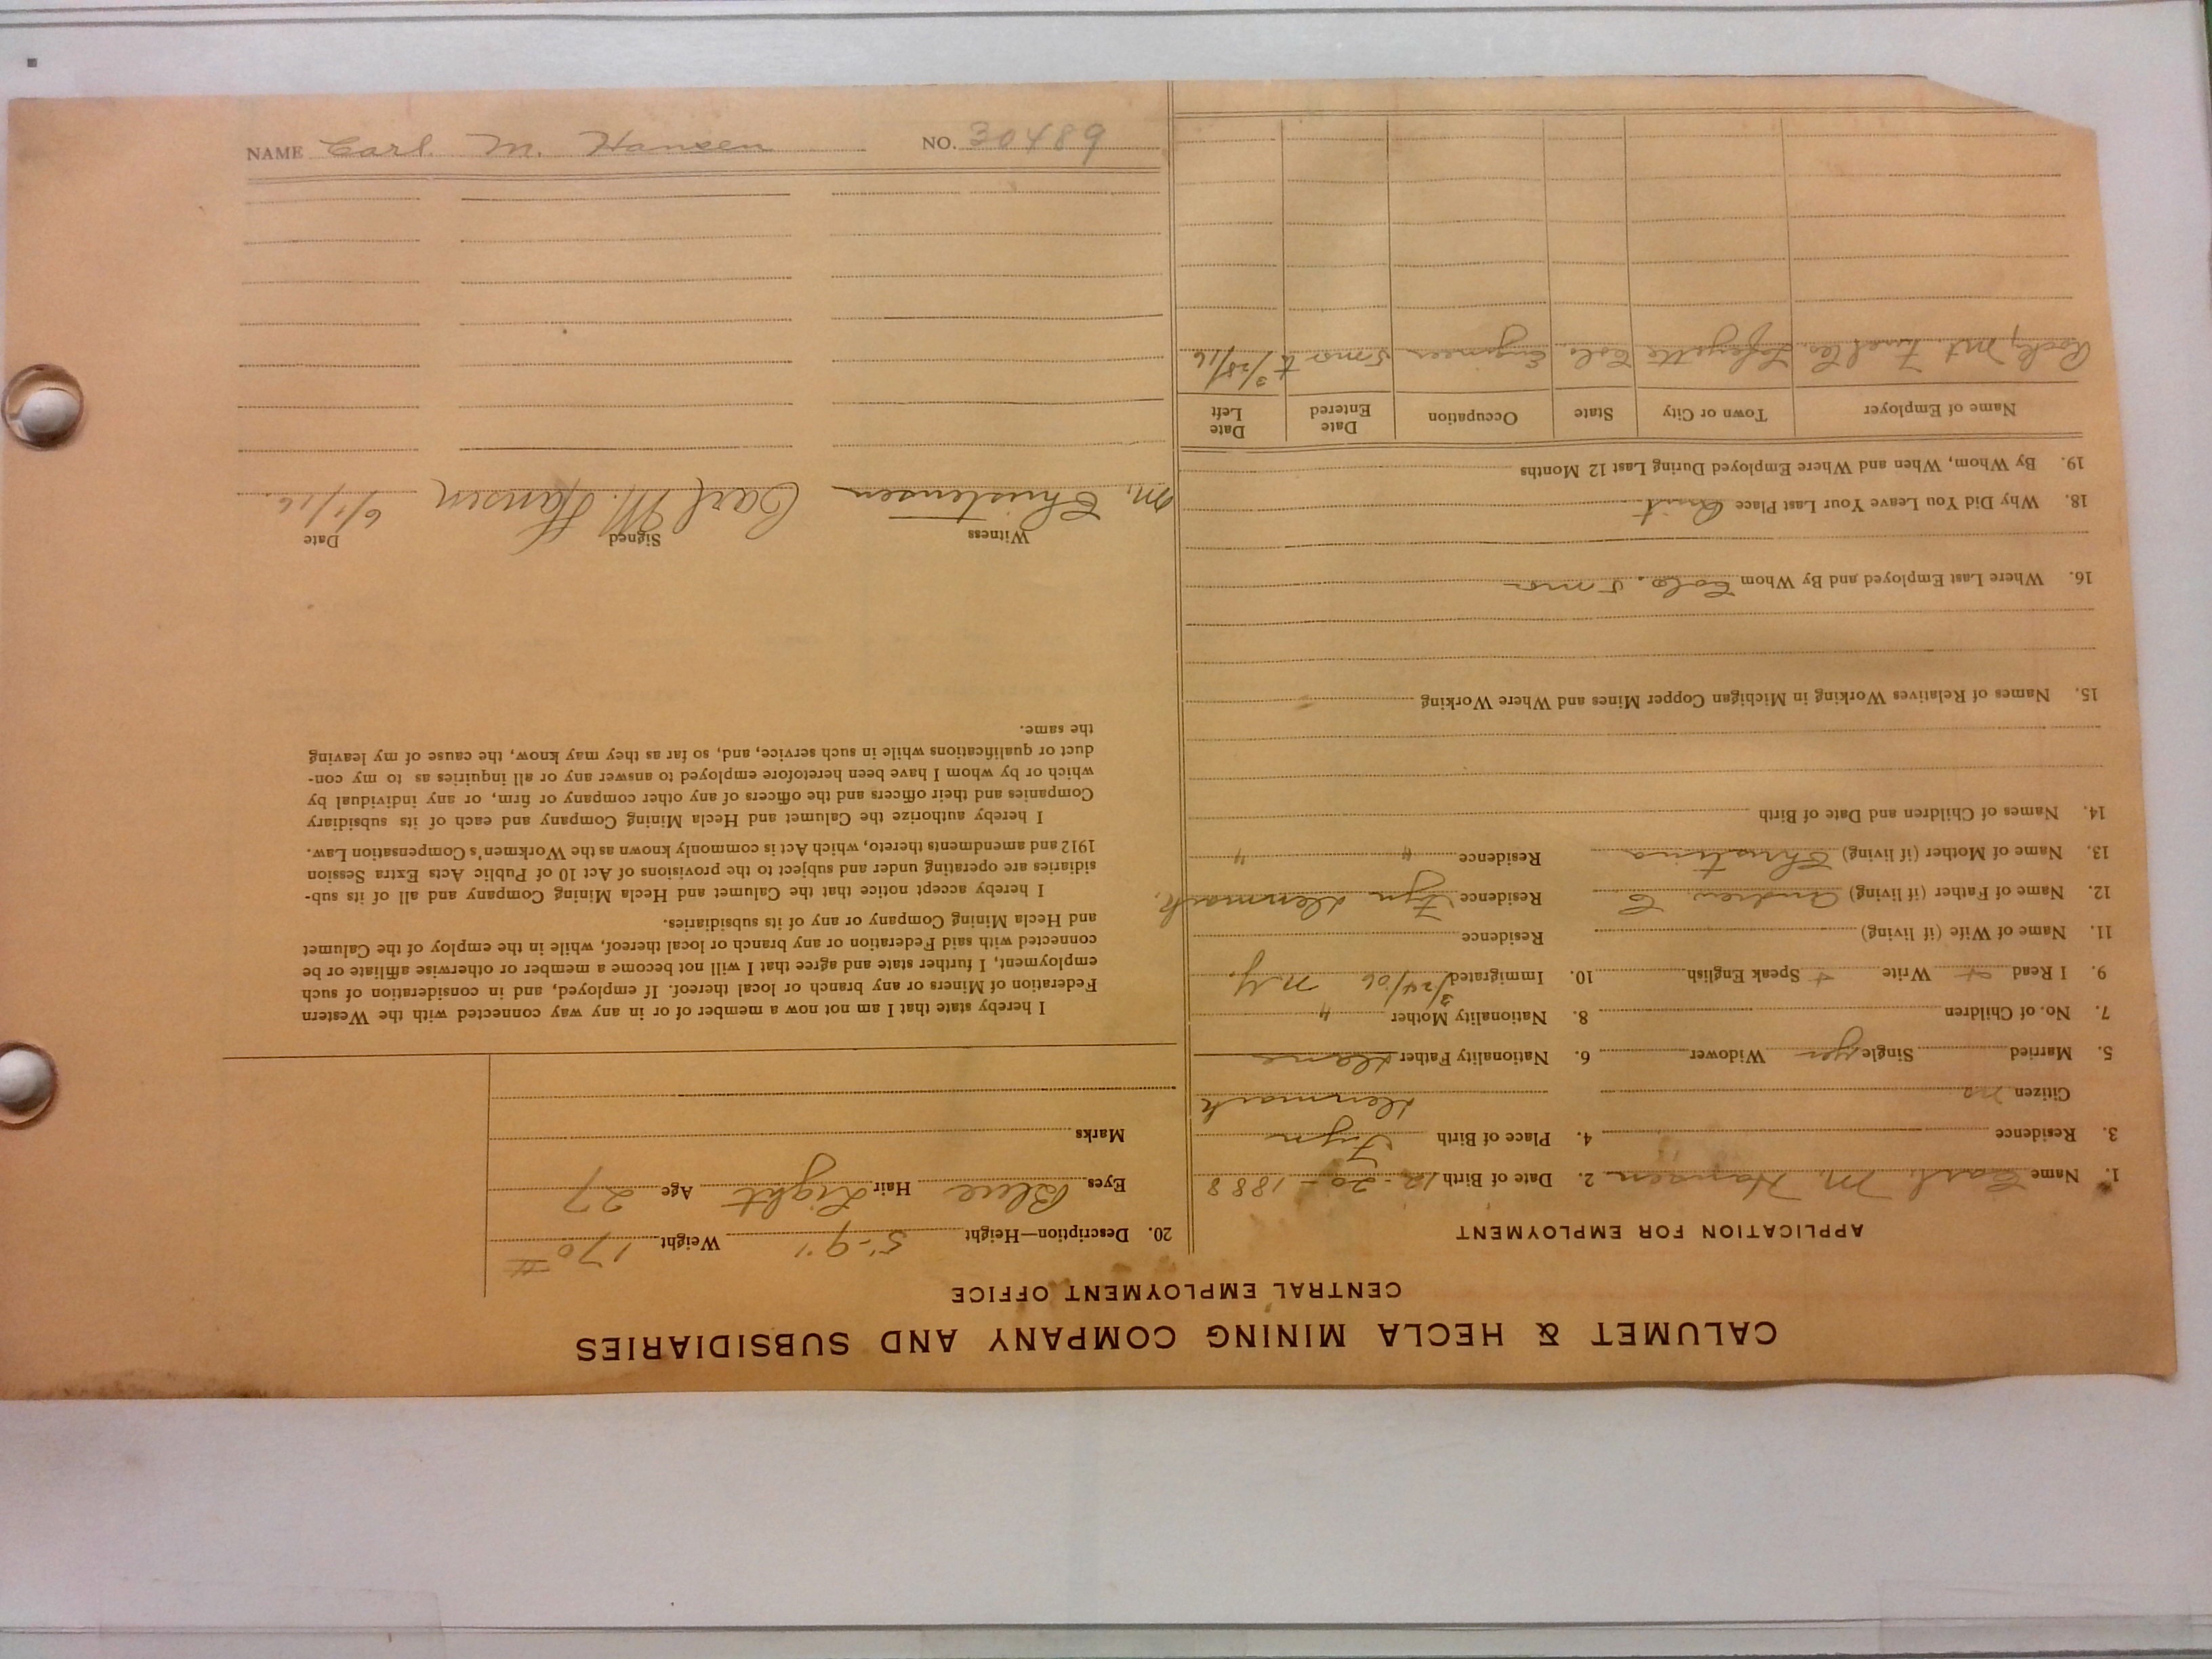 CALUMET & HECLA MINING COMPANY AND SUBSIDIARIES
CENTRAL EMPLOYMENT OFFICE
APPLICATION FOR EMPLOYMENT
1. Name Carl M. Hansen 2. Date of Birth 12-20-1888
3. Residence 4. Place of Birth Fyn
Citizen no Denmark
5. Married Single yes Widower 6. Nationality Father Dane
7. No. of Children 8. Nationality Mother "
9. I Read + Write + Speak English 10. Immigrated 3/24/06 N.Y.
11. Name of Wife (if living) Residence
12. Name of Father (if living) Andrew C Residence Fyn Denmark,
13. Name of Mother (if living) Christina Residence " "
14. Names of Children and Date of Birth
15. Names of Relatives Working in Michigan Copper Mines and Where Working
16. Where Last Employed and By Whom Colo. 5 mo
18. Why Did You Leave Your Last Place Quit
19. By Whom, When and Where Employed During Last 12 Months
Name of Employer Town or City State Occupation Date Entered Date Left
Rocky Mt. Fuel Co. Lafayette Colo. Engineer 5 mo to 3/28/16
20. Description—Height 5'-9" Weight 170 #
Eyes Blue Hair Light Age 27
Marks
I hereby state that I am not now a member of or in any way connected with the Western
Federation of Miners or any branch or local thereof. If employed, and in consideration of such
employment, I further state and agree that I will not become a member or otherwise affiliate or be
connected with said Federation or any branch or local thereof, while in the employ of the Calumet
and Hecla Mining Company or any of its subsidiaries.
I hereby accept notice that the Calumet and Hecla Mining Company and all of its sub-
sidiaries are operating under and subject to the provisions of Act 10 of Public Acts Extra Session
1912 and amendments thereto, which Act is commonly known as the Workmen's Compensation Law.
I hereby authorize the Calumet and Hecla Mining Company and each of its subsidiary
Companies and their officers and the officers of any other company or firm, or any individual by
which or by whom I have been heretofore employed to answer any or all inquiries as to my con-
duct or qualifications while in such service, and, so far as they may know, the cause of my leaving
the same.
Witness Signed Date
M. Christensen Carl M. Hansen 6/1/16
NAME Carl M. Hansen NO. 30489